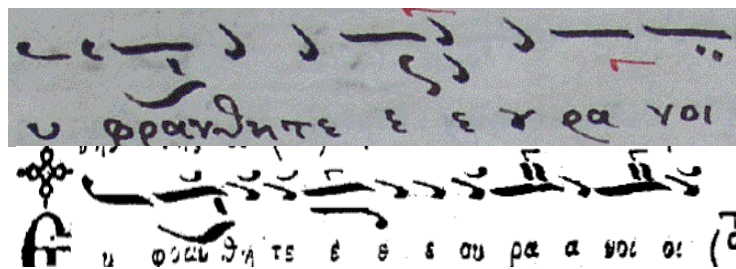 υ φρανθητε ε ε ȣ ρα νοι
Ευ φραν θη τε ε ε ε ου ρα α νοι οι